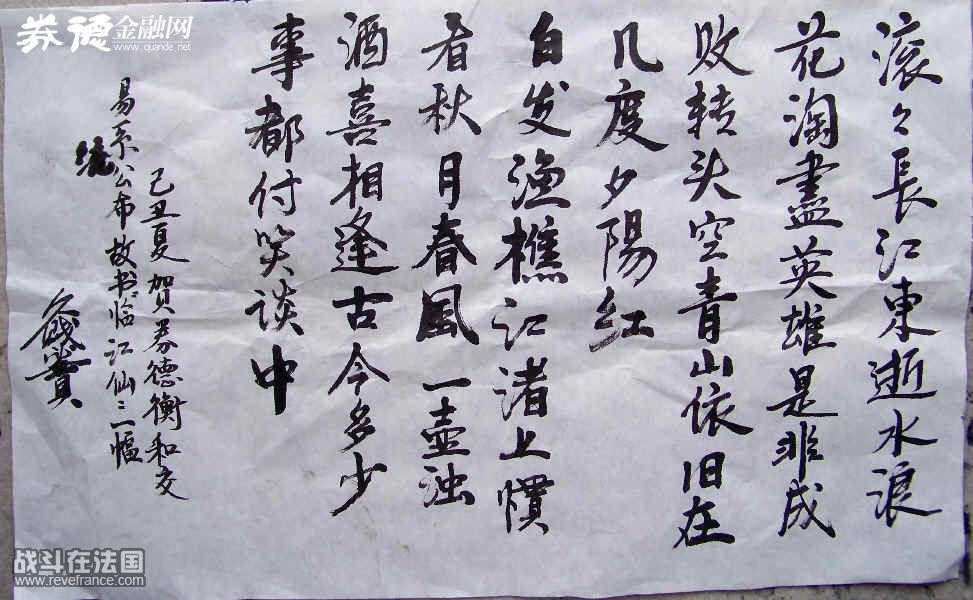 券德金融网
www.quande.net
滚々長江東逝水浪
花淘盡英雄是非成
败转头空青山依旧在
几度夕陽红
白发渔樵江渚上慣
看秋月春風一壶浊
酒喜相逢古今多少
事都付笑谈中
己丑夏 贺券德衡和交
易系统公布故书临江仙二幅
战斗在法国
www.revefrance.com